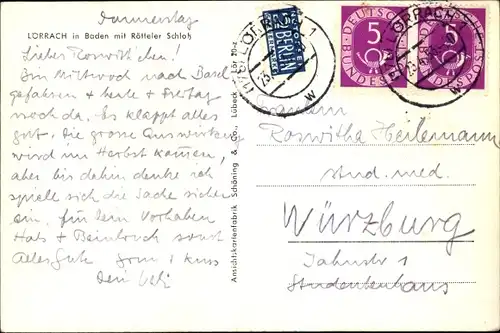 Donnerstag
LÖRRACH in Baden mit Rötteler Schloß
Liebes Roswithchen!
Bin Mittwoch nach Basel
gefahren + heute + Freitag
noch da. Es klappt alles
gut. Die grosse Auswirkung
wird im Herbst kommen,
aber bis dahin denke ich
spielt sich die Sache sicher
ein. Für dein Vorhaben
Hals + Beinbruch sonst
Alles Gute Gruss + Kuss
Dein
Ansichtskartenfabrik Schöning & Co., Lübeck
LÖRRACH
NOTOPFER
2 BERLIN
STEUERMARKE
DEUTSCHE BUNDESPOST
5
DEUTSCHE BUNDESPOST
5
LÖRRACH
Roswitha Heilemann
stud. med.
Würzburg
Jahnstr 1
Studentenhaus